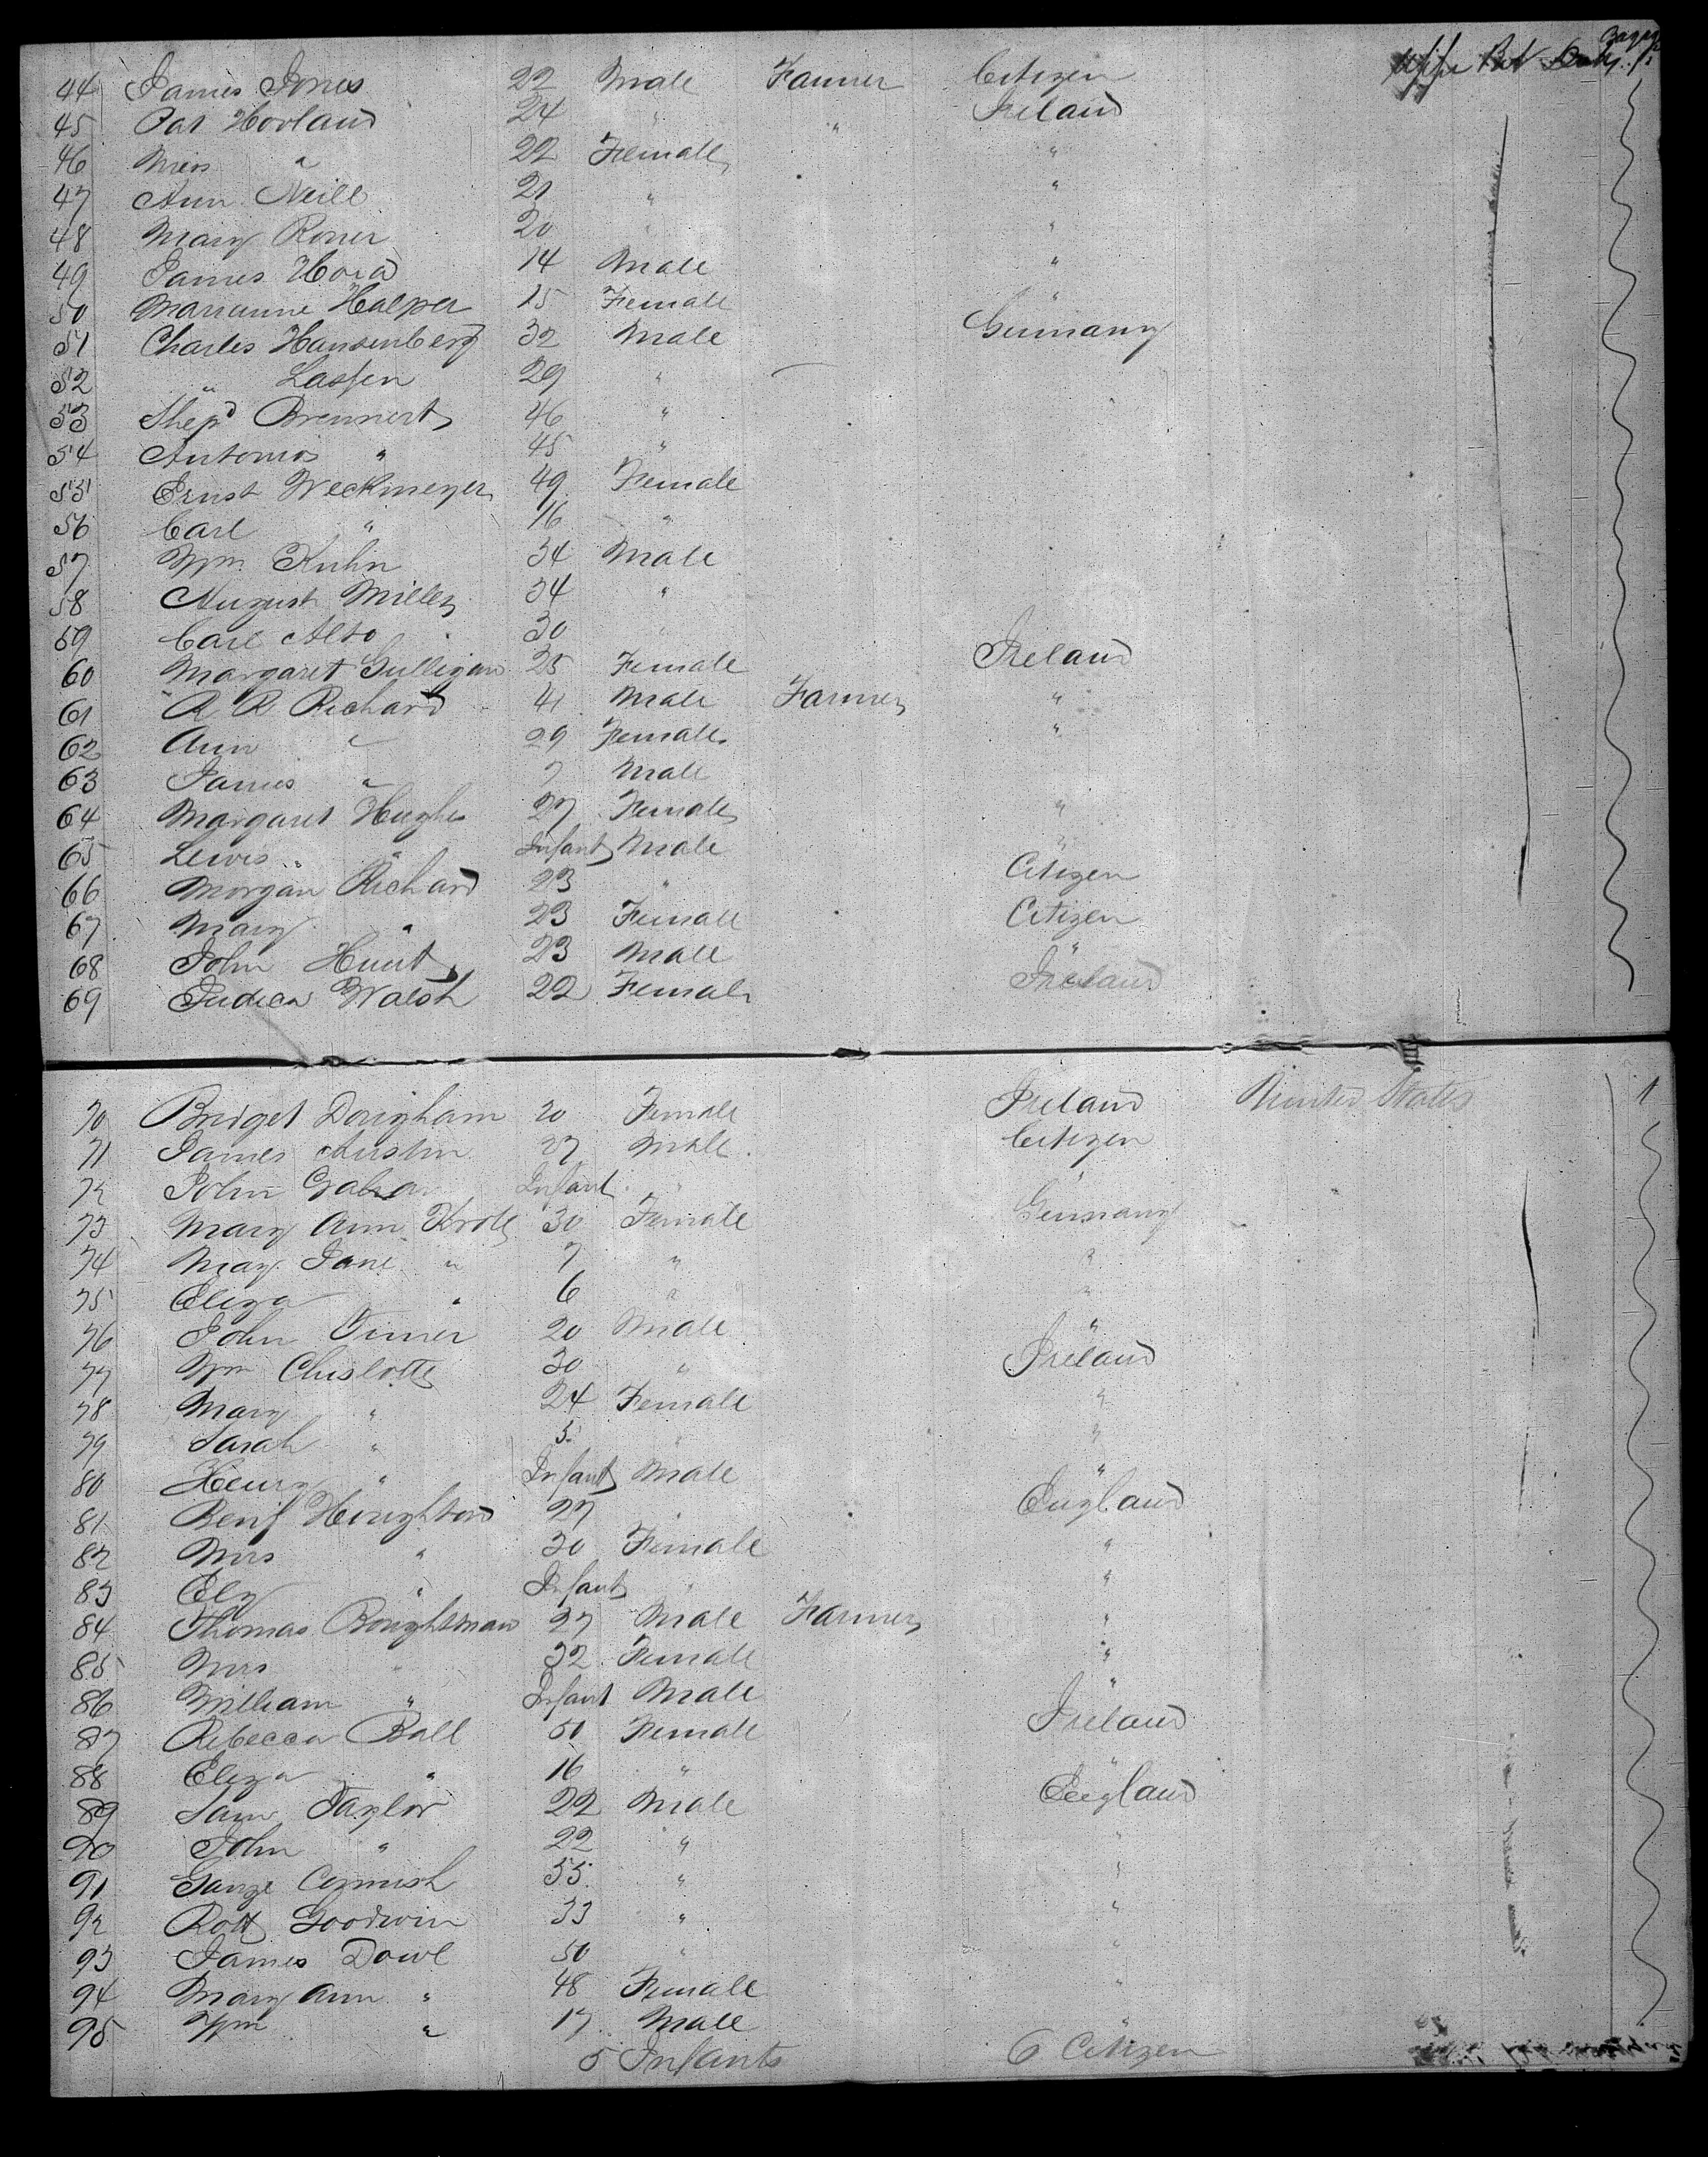 Bagage
44 James Jones 22 Male Farmer Citizen
45 Pat Hovland 24 " " Ireland
46 Miss " 22 Female "
47 Ann Neill 21 " "
48 Mary Roner 20 " "
49 James Hora 14 Male "
50 Marianne Halper 15 Female "
51 Charles Hansenberg 32 Male Germany
52 " Lassen 29 "
53 Shepd Brennert 46 "
54 Antonio " 45 "
55 Ernst Weckmeyer 49 Female
56 Carl " 16 "
57 Wm Kuhn 34 Male
58 August Miller 34 "
59 Carl Alto 30
60 Margaret Gulligan 25 Female Ireland
61 R R Richard 41 Male Farmer "
62 Ann " 29 Female "
63 James " 7 Male
64 Margaret Hughes 27 Female "
65 Lewis " Infant Male "
66 Morgan Richard 23 " Citizen
67 Mary " 23 Female Citizen
68 John Hunt 23 Male "
69 Judica Walsh 22 Female Ireland
70 Bridget Dougham 20 Female Ireland United States 1
71 James Austin 27 Male Citizen
72 John Infant " "
73 Mary Ann Krote 30 Female Germany
74 Mary Jane " 7 " "
75 Eliza " 6 " "
76 John Turner 20 Male "
77 Wm Chislotte 30 " Ireland
78 Mary " 24 Female "
79 Sarah " 5 " "
80 Henry " Infant Male "
81 Benj Houghton 27 " England
82 Mrs " 30 Female "
83 Ely " Infant " "
84 Thomas Boughtman 37 Male Farmer "
85 Mrs " 32 Female "
86 William " Infant Male "
87 Rebecca Ball 50 Female Ireland
88 Eliza " 16 " "
89 Sam Taylor 22 Male England
90 John " 22 " "
91 Gauge Cornish 35 " "
92 Robt Goodwin 33 " "
93 James Dowl 50 " "
94 Mary Ann " 48 Female "
95 Wm " 17 Male "
5 Infants 6 Citizen